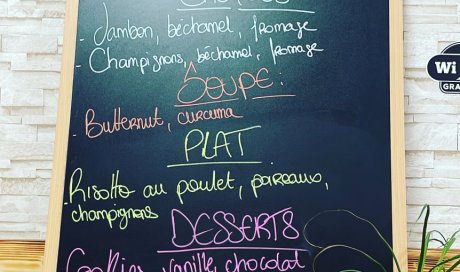 - Jambon, béchamel, fromage
- Champignons, béchamel, fromage
Soupe :
- Butternut, curcuma
PLAT
- Risotto au poulet, poireaux,
champignons
DESSERTS
Cookies vanille, chocolat
Wi
GRA